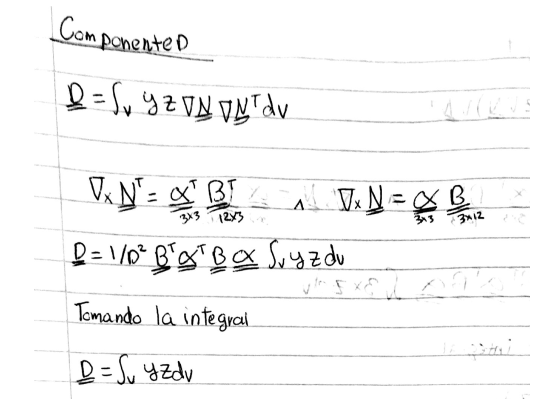 Componente D
D = ∫v y z ∇N ∇N^T dv
∇x N^T = α^T B^T ∧ ∇x N = α B
3x3 12x3 3x3 3x12
D = 1/D² B^T α^T B α ∫v y z dv
Tomando la integral
D = ∫v yzdv